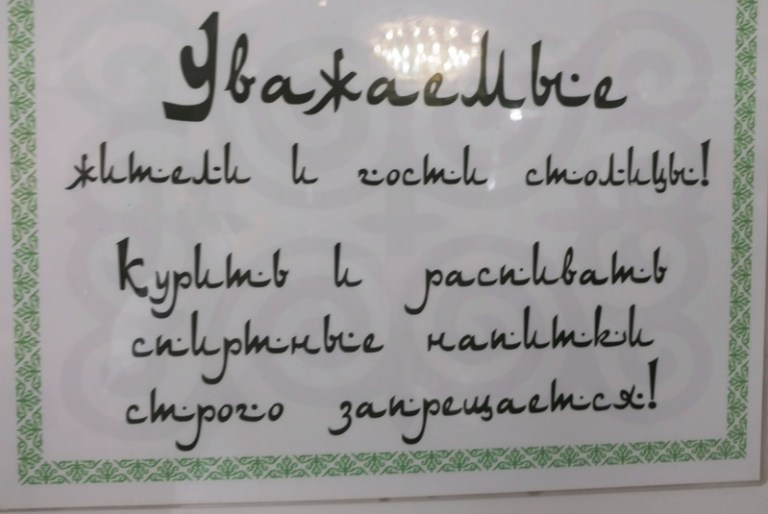 Уважаемые
жители и гости столицы!
Курить и распивать
спиртные напитки
строго запрещается!